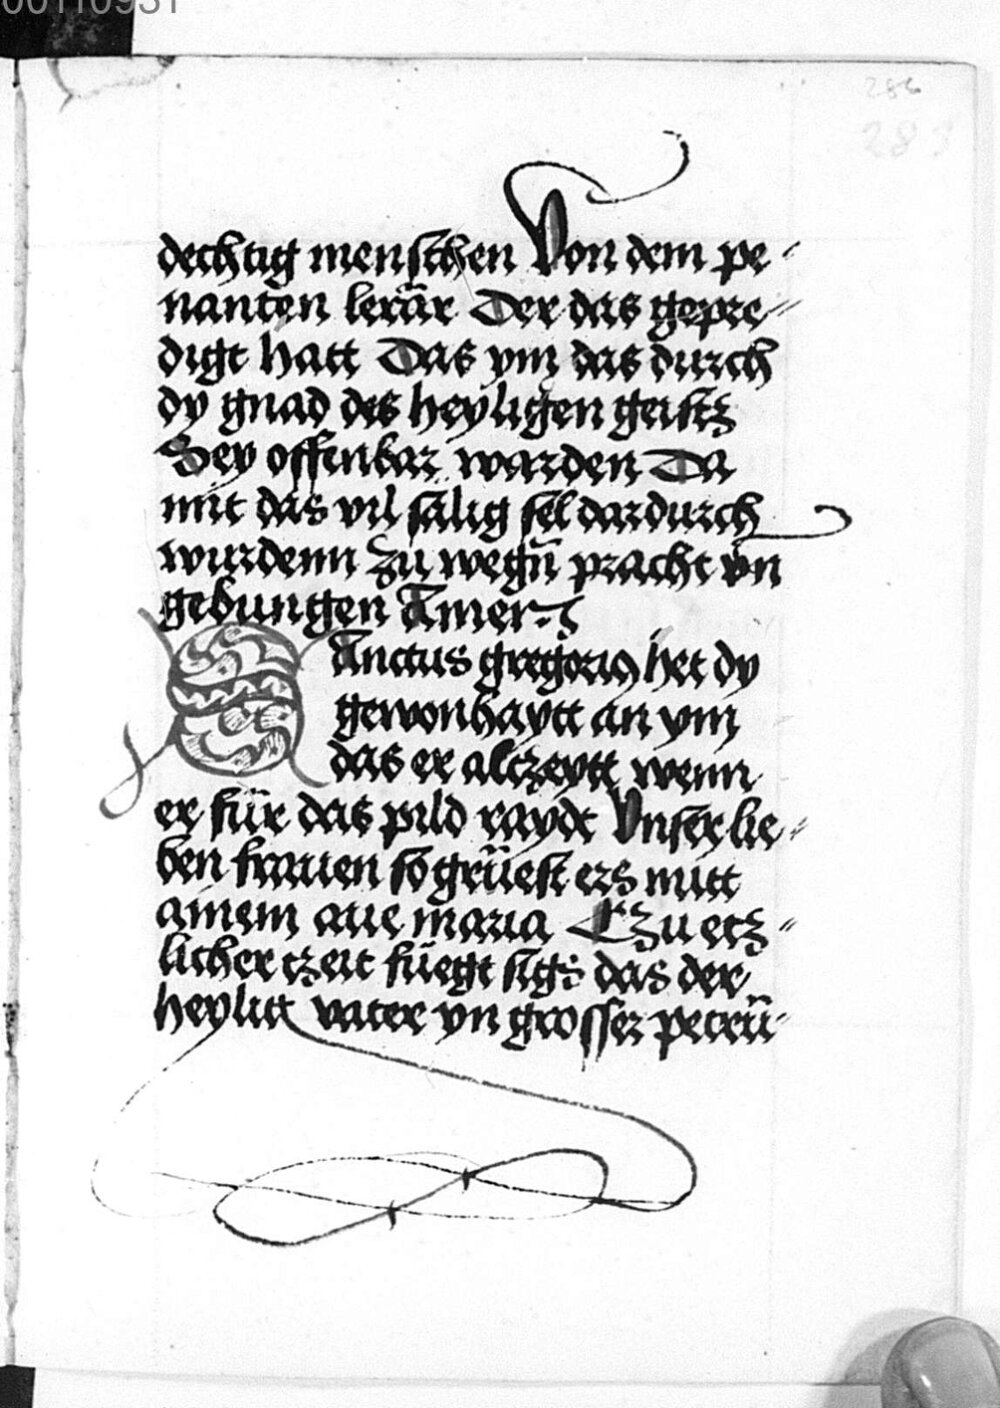 00110931
286
283
dechtig menschen Von dem pe-
nanten lerär Der das gepre-
digt hatt Das ym das durch
dy gnad des heyligen geistz
Sey offenbar warden Da
mit das vil sälig sel dardurch
wurdenn zu wegn̄ pracht vn
gebungen Amen
SAnctus gregorius het dy
gewonhaytt an ym
das er alczeytt wenn
er für das pild raydt Vnser lie-
ben frauen so grüest ers mitt
ainem aue maria Czu etz-
licher czeit füegt sigs das der
heylitt vater yn grosser petrü-